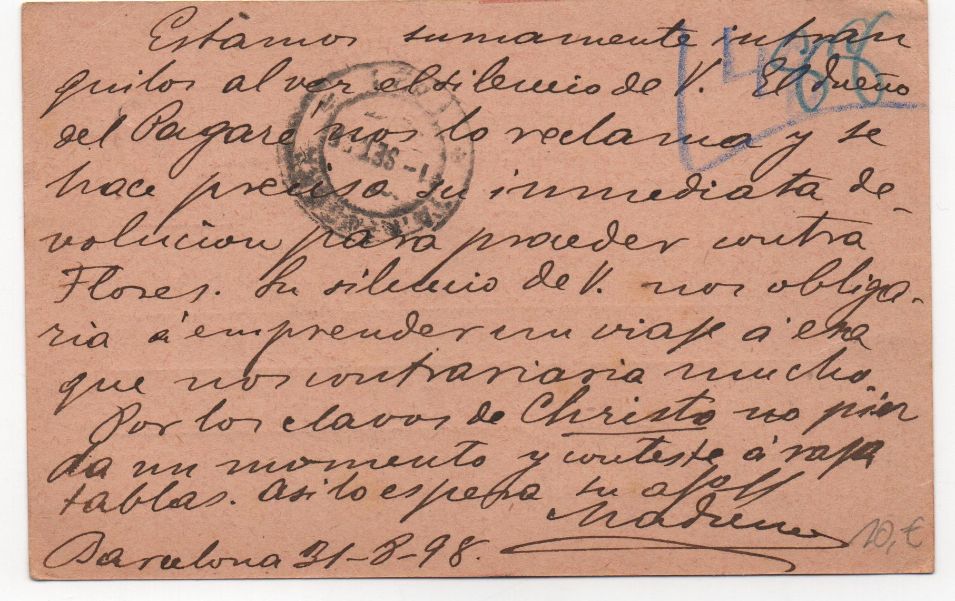 Estamos sumamente intran
quilos al ver el silencio de V. El dueño
del Pagaré nos lo reclama y se
hace preciso su inmediata de-
volucion para proceder contra
Flores. Su silencio de V. nos obliga-
ria á emprender un viaje á esa
que nos contrariaria mucho.
Por los clavos de Christo no pier
da un momento y conteste á raja
tablas. Asi lo espera su
Barcelona 31-8-98.
468
1- SET
10,€